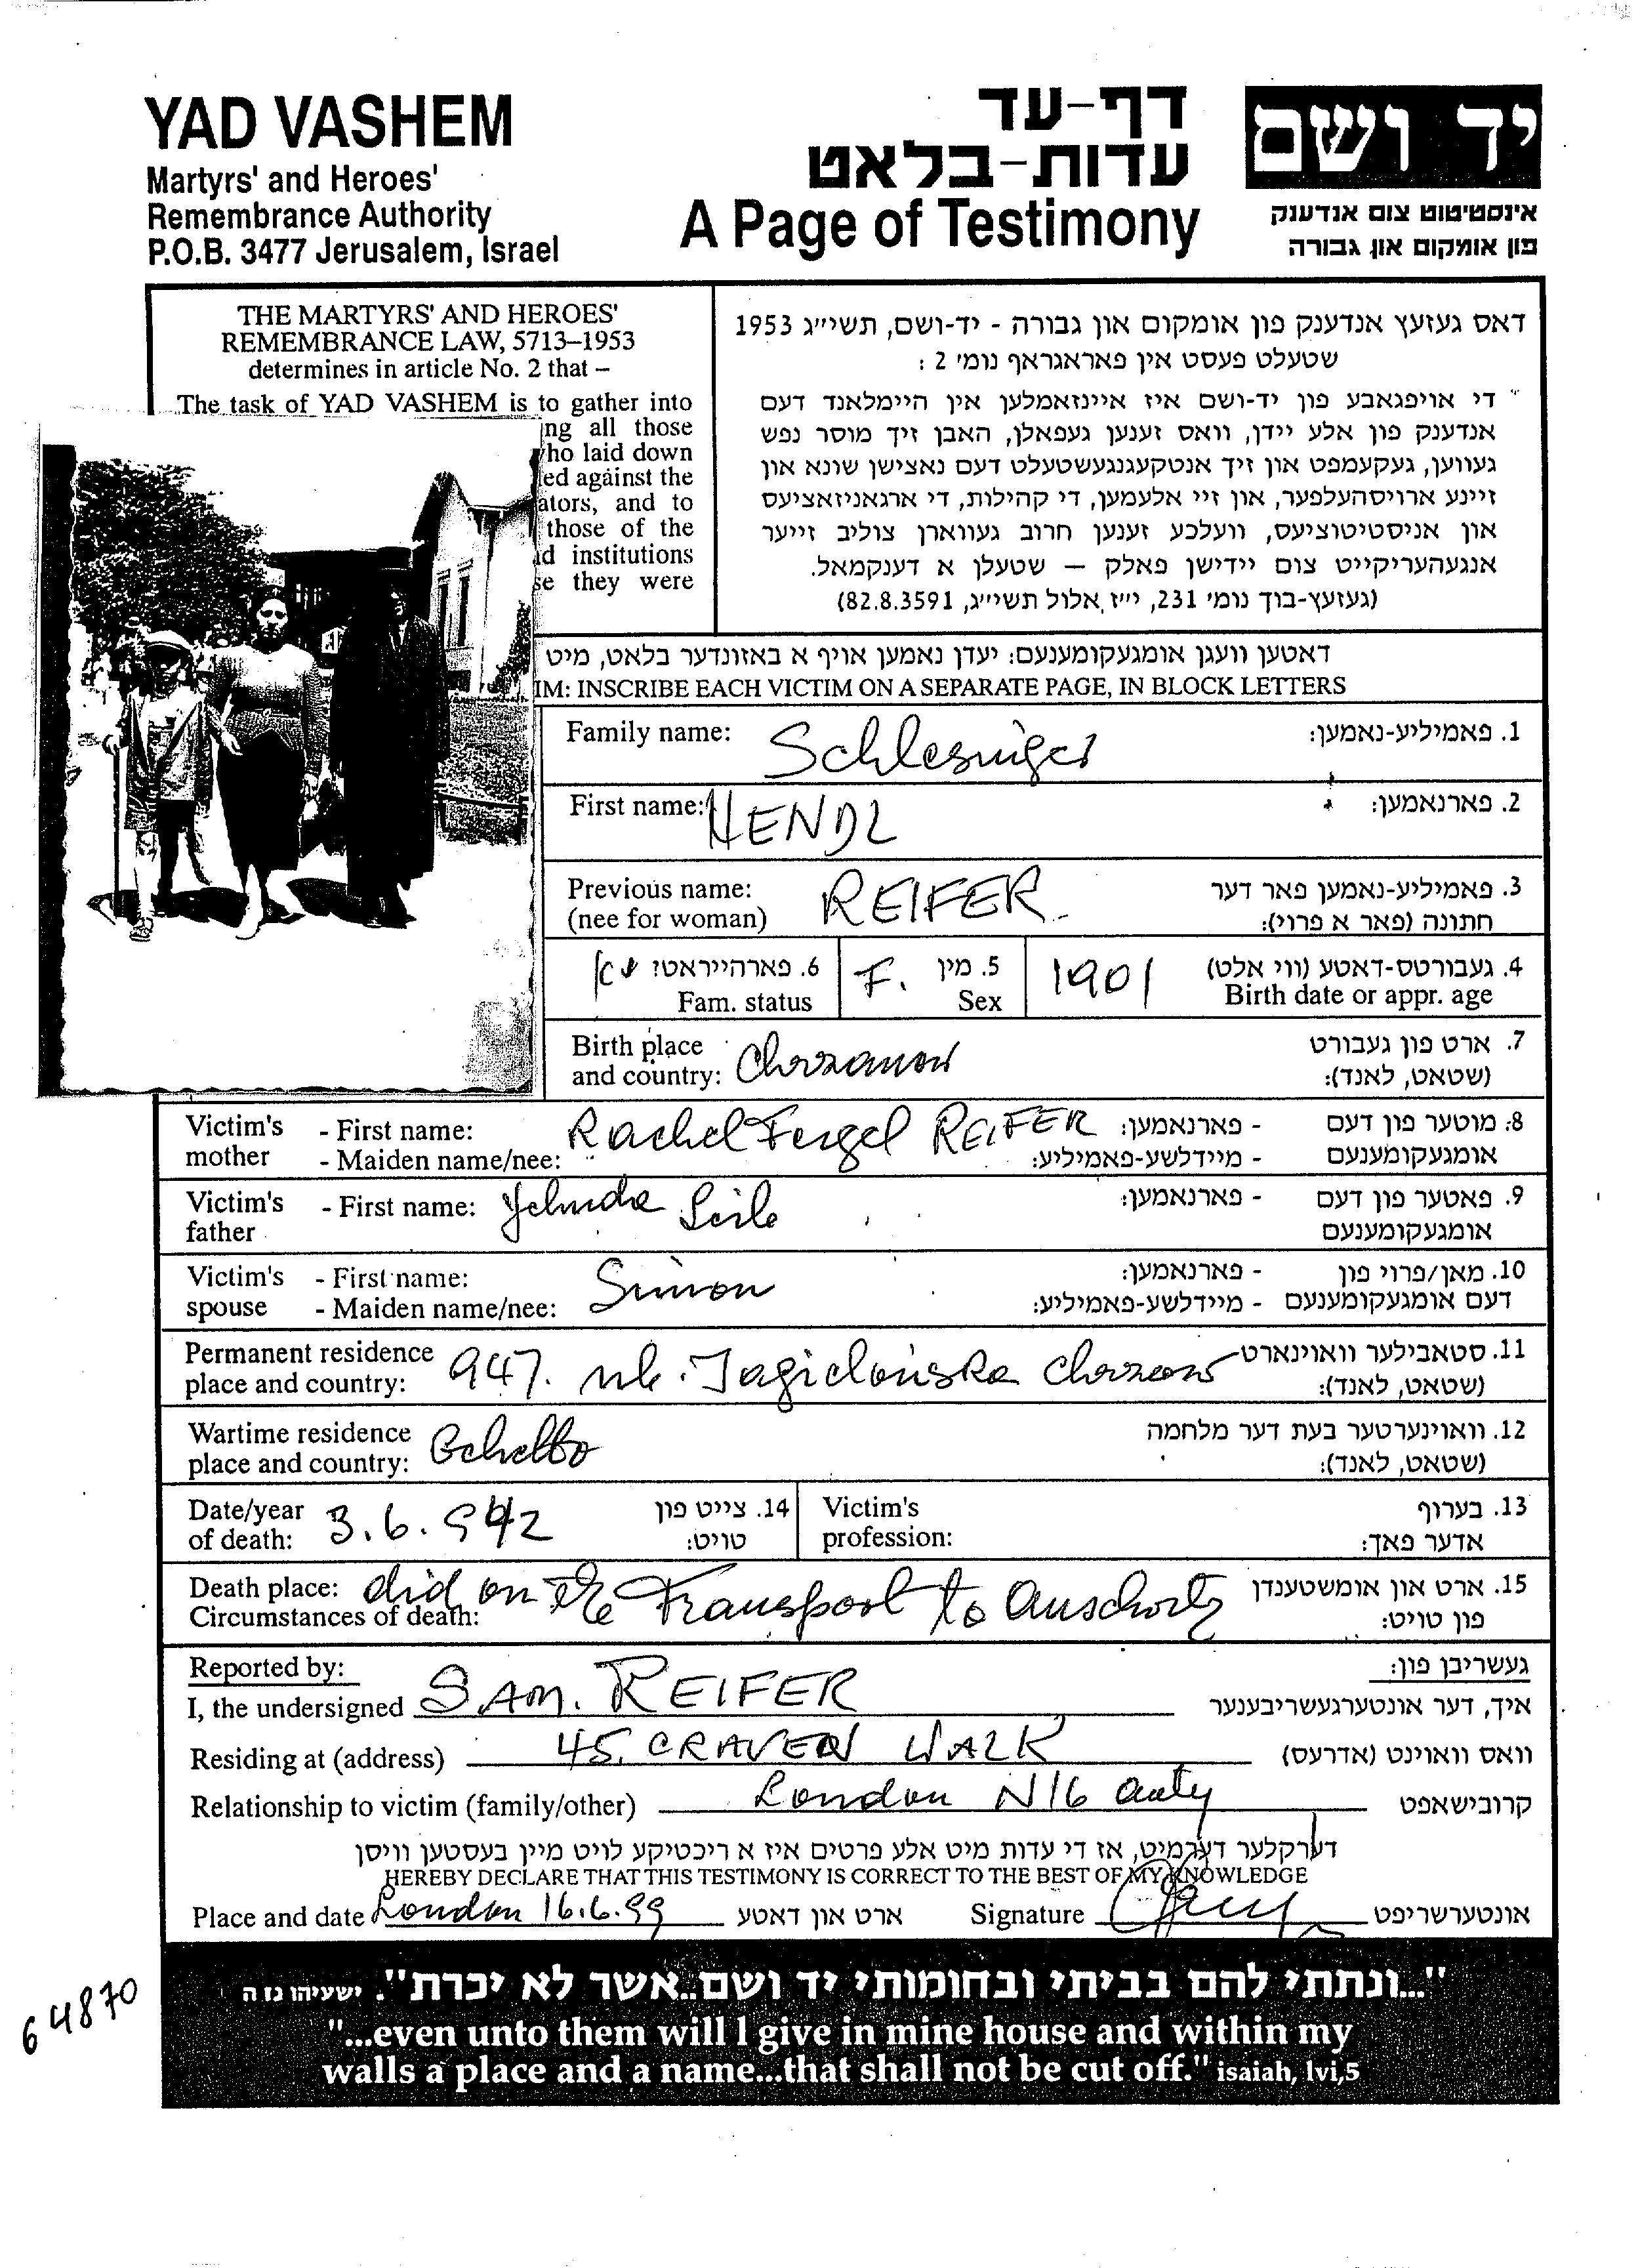 YAD VASHEM
Martyrs' and Heroes'
Remembrance Authority
P.O.B. 3477 Jerusalem, Israel
דף-עד
עדות-בלאט
A Page of Testimony
יד ושם
אינסטיטוט צום אנדענק
פון אומקום און גבורה
THE MARTYRS' AND HEROES'
REMEMBRANCE LAW, 5713–1953
determines in article No. 2 that –
The task of YAD VASHEM is to gather into
ng all those
ho laid down
ed against the
ators, and to
those of the
d institutions
se they were
דאס געזעץ אנדענק פון אומקום און גבורה - יד-ושם, תשי״ג 1953
שטעלט פעסט אין פאראגראף נומ׳ 2 :
״ די אויפגאבע פון יד-ושם איז איינזאמלען אין היימלאנד דעם
אנדענק פון אלע יידן, וואס זענען געפאלן, האבן זיך מוסר נפש
געווען, געקעמפט און זיך אנטקעגנגעשטעלט דעם נאצישן שונא און
זיינע ארויסהעלפער, און זיי אלעמען, די קהילות, די ארגאניזאציעס
און אניסטיטוציעס, וועלכע זענען חרוב געווארן צוליב זייער
אנגעהעריקייט צום יידישן פאלק — שטעלן א דענקמאל.
(געזעץ-בוך נומ׳ 231, י״ז אלול תשי״ג, 82.8.3591)
דאטען וועגן אומגעקומענעם: יעדן נאמען אויף א באזונדער בלאט, מיט
IM: INSCRIBE EACH VICTIM ON A SEPARATE PAGE, IN BLOCK LETTERS
Family name: Schlesinger 1. פאמיליע-נאמען:
First name: HENDL 2. פארנאמען:
Previous name: REIFER 3. פאמיליע-נאמען פאר דער
(nee for woman) חתונה (פאר א פרוי):
6. פארהייראט? F. 5. מין 1901 4. געבורטס-דאטע (ווי אלט)
Fam. status Sex Birth date or appr. age
Birth place Chrzanow 7. ארט פון געבורט
and country: (שטאט, לאנד):
Victim's - First name: Rachel Feigel REIFER - פארנאמען: 8. מוטער פון דעם
mother - Maiden name/nee: - מיידלשע-פאמיליע: אומגעקומענעם
Victim's - First name: Yehuda Leib - פארנאמען: 9. פאטער פון דעם
father אומגעקומענעם
Victim's - First name: Simon - פארנאמען: 10. מאן/פרוי פון
spouse - Maiden name/nee: - מיידלשע-פאמיליע: דעם אומגעקומענעם
Permanent residence 947. ul. Jagielońska 11. סטאבילער וואוינארט
place and country: (שטאט, לאנד):
Wartime residence Gehetto 12. וואוינערטער בעת דער מלחמה
place and country: (שטאט, לאנד):
Date/year 3.6.942 14. צייט פון Victim's 13. בערוף
of death: טויט: profession: אדער פאך:
Death place: did on the Transport to 15. ארט און אומשטענדן
Circumstances of death: פון טויט:
Reported by: געשריבן פון:
I, the undersigned SAM. REIFER איך, דער אונטערגעשריבענער
Residing at (address) 45. CRAVEN WALK וואס וואוינט (אדרעס)
Relationship to victim (family/other) London N16 קרובישאפט
דערקלער דערמיט, אז די עדות מיט אלע פרטים איז א ריכטיקע לויט מיין בעסטען וויסן
HEREBY DECLARE THAT THIS TESTIMONY IS CORRECT TO THE BEST OF MY KNOWLEDGE
Place and date London 16.6.99 ארט און דאטע Signature אונטערשריפט
"...ונתתי להם בביתי ובחומותי יד ושם..אשר לא יכרת". ישעיהו נו ה
"...even unto them will I give in mine house and within my
walls a place and a name...that shall not be cut off." isaiah, lvi,5
64870